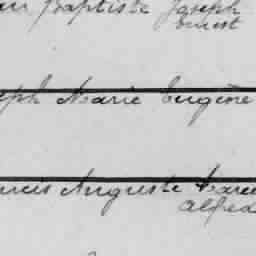 Baptiste Joseph
Ernest
eph Marie Eugène
ncis Auguste Marie
Alfred